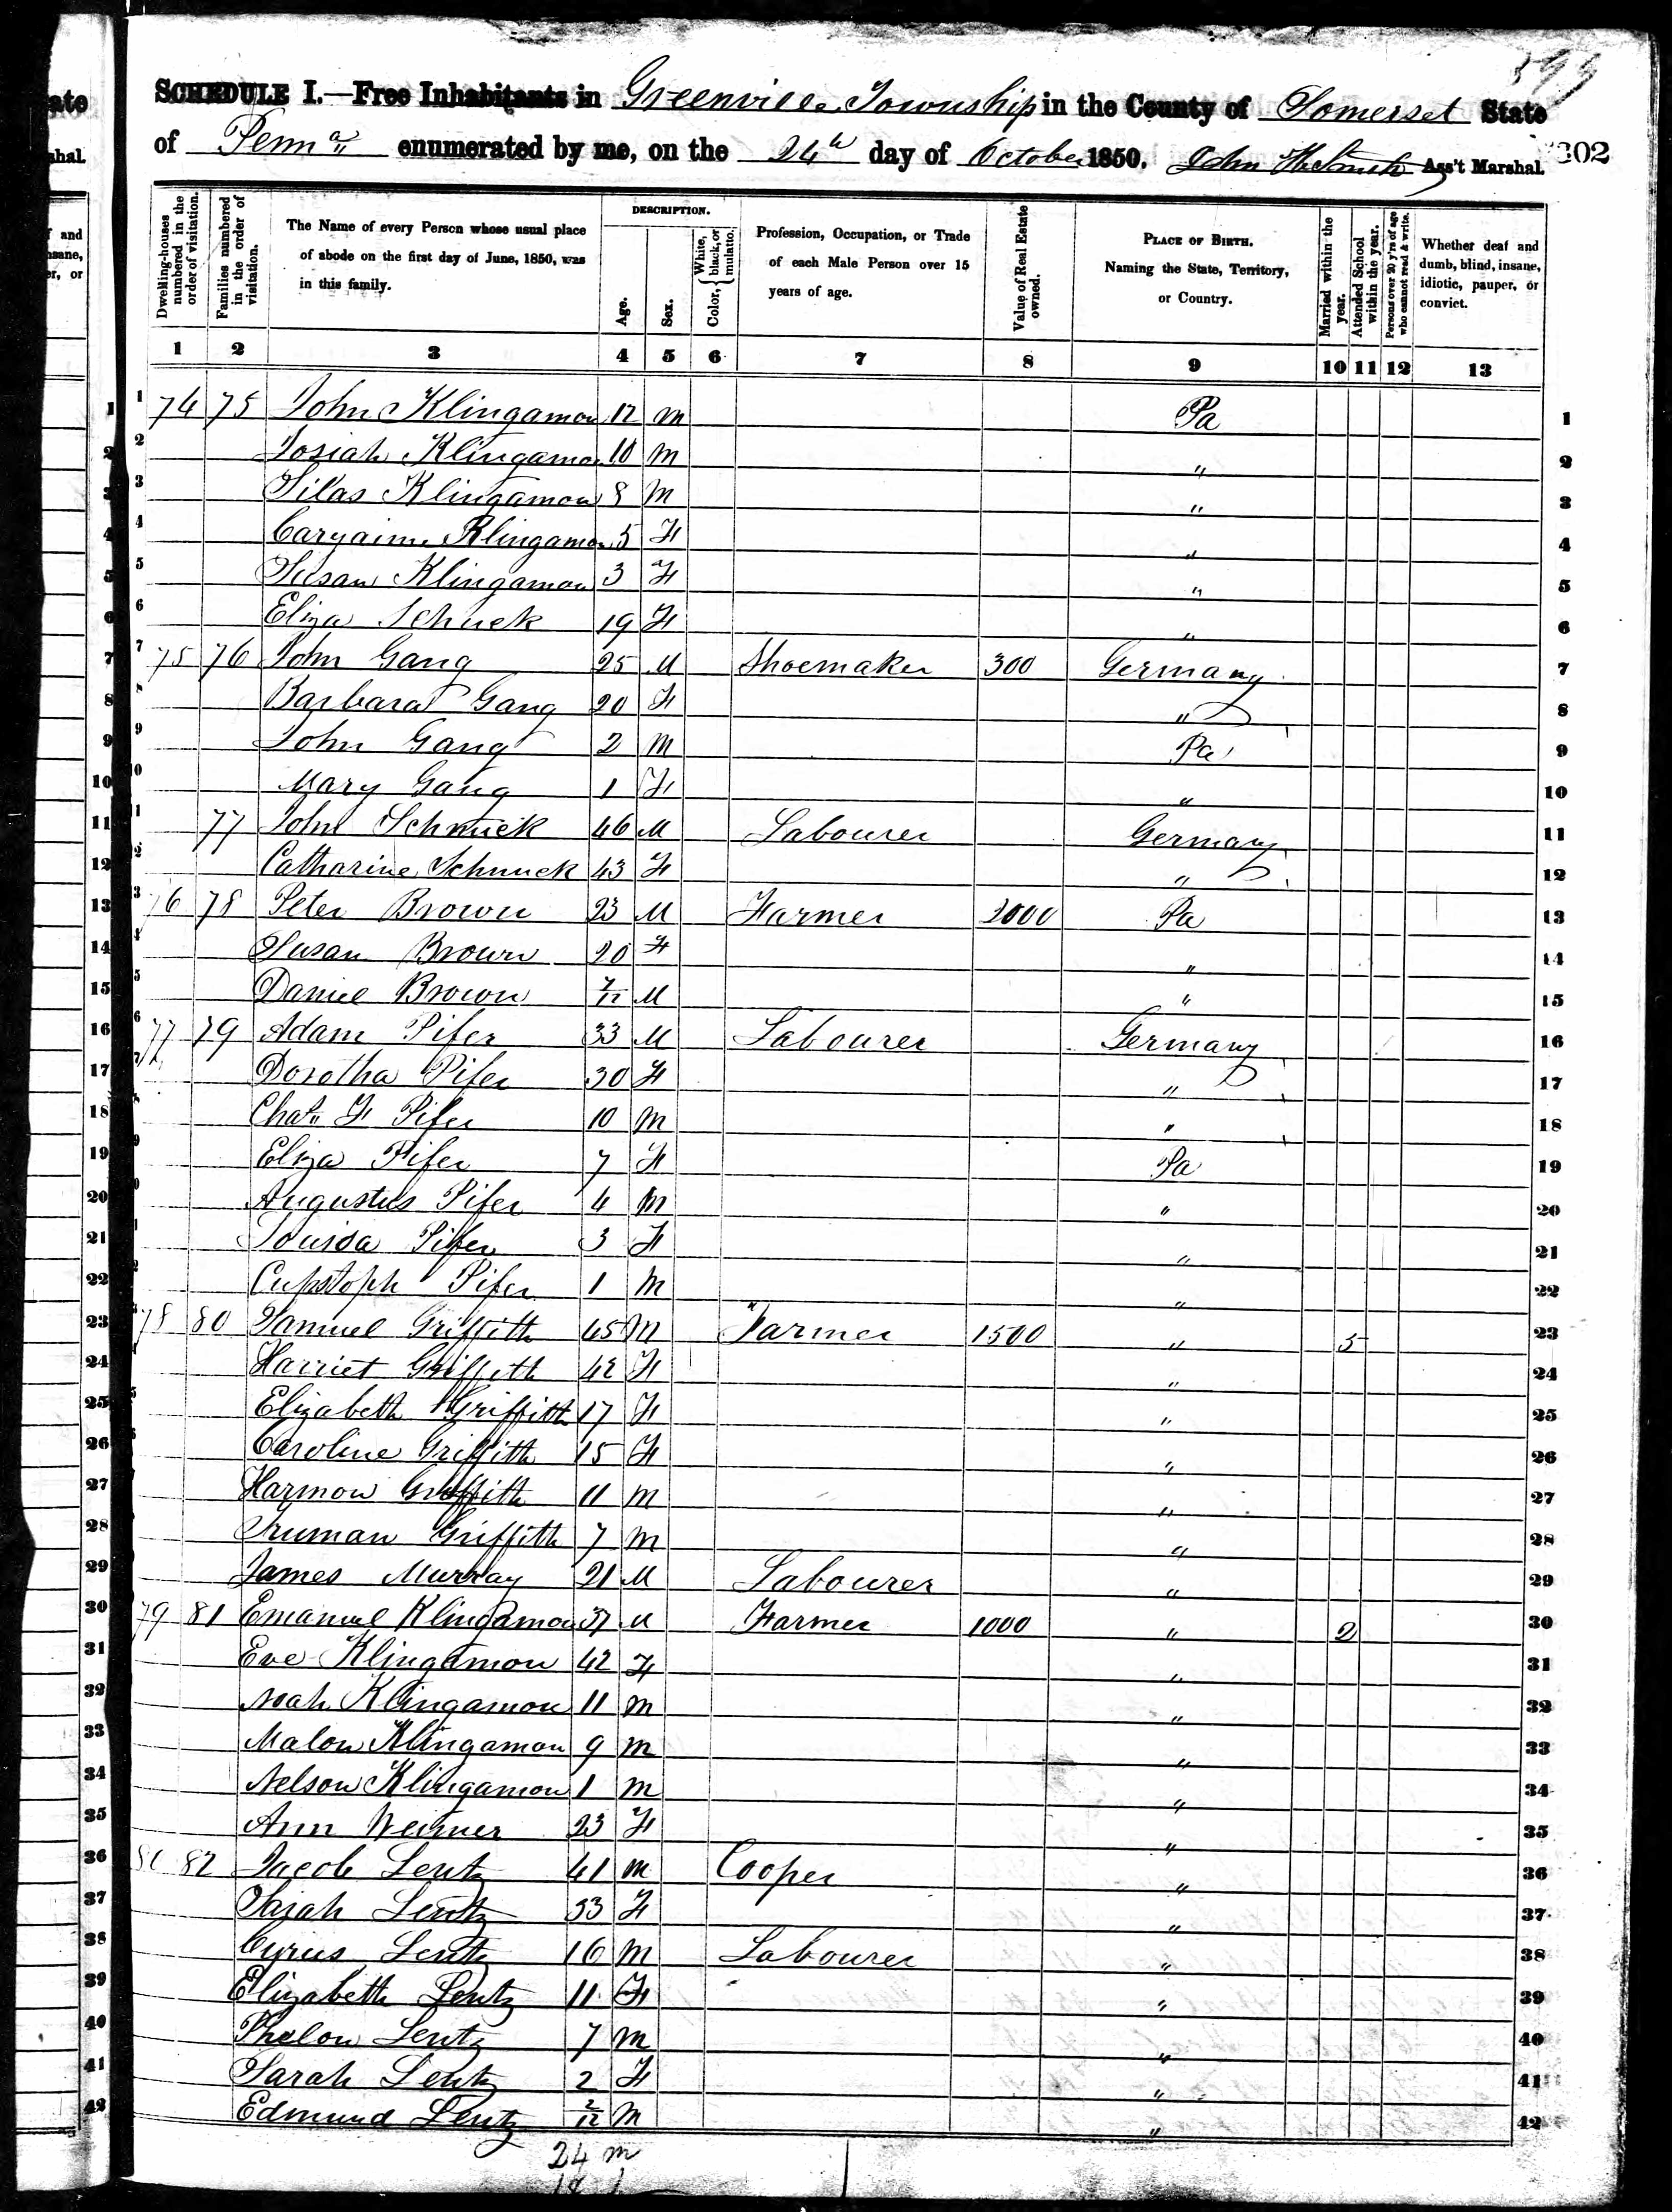 599
SCHEDULE I.—Free Inhabitants in Greenville Township in the County of Somerset State
of Penna enumerated by me, on the 24th day of October 1850. John H Smith Ass't Marshal. 302
Dwelling-houses numbered in the order of visitation.
Families numbered in the order of visitation.
The Name of every Person whose usual place of abode on the first day of June, 1850, was in this family.
DESCRIPTION.
Age.
Sex.
Color, { White, black, or mulatto.
Profession, Occupation, or Trade of each Male Person over 15 years of age.
Value of Real Estate owned.
PLACE OF BIRTH. Naming the State, Territory, or Country.
Married within the year.
Attended School within the year.
Persons over 20 y'rs of age who cannot read & write.
Whether deaf and dumb, blind, insane, idiotic, pauper, or convict.
1 2 3 4 5 6 7 8 9 10 11 12 13
1 74 75 John Klingaman 12 M Pa 1
2 Josiah Klingaman 10 M " 2
3 Silas Klingaman 8 M " 3
4 Klingaman 5 F " 4
5 Susan Klingaman 3 F " 5
6 Eliza Schuck 19 F " 6
7 75 76 John Gang 25 M Shoemaker 300 Germany 7
8 Barbara Gang 20 F " 8
9 John Gang 2 M Pa 9
10 Mary Gang 1 F " 10
11 77 John Schmuck 46 M Labourer Germany 11
12 Catharine Schmuck 43 F " 12
13 76 78 Peter Brown 23 M Farmer 2000 Pa 13
14 Susan Brown 20 F " 14
15 Daniel Brown 7/12 M " 15
16 77 79 Adam Pifer 33 M Labourer Germany 16
17 Dorotha Pifer 30 F " 17
18 F Pifer 10 M " 18
19 Eliza Pifer 7 F Pa 19
20 Augustus Pifer 4 M " 20
21 Louisa Pifer 3 F " 21
22 Pifer 1 M " 22
23 78 80 Samuel Griffith 45 M Farmer 1500 " 5 23
24 Harriet Griffith 42 F " 24
25 Elizabeth Griffith 17 F " 25
26 Caroline Griffith 15 F " 26
27 Harmon Griffith 11 M " 27
28 Truman Griffith 7 M " 28
29 James Murray 21 M Labourer " 29
30 79 81 Emanuel Klingaman 37 M Farmer 1000 " 2 30
31 Eve Klingamon 42 F " 31
32 Noah Klingamon 11 M " 32
33 Malon Klingamon 9 M " 33
34 Nelson Klingamon 1 M " 34
35 Ann Weimer 23 F " 35
36 80 82 Jacob Lentz 41 M Cooper " 36
37 Sarah Lentz 33 F " 37
38 Cyrus Lentz 16 M Labourer " 38
39 Elizabeth Lentz 11 F " 39
40 Lentz 7 M " 40
41 Sarah Lentz 2 F " 41
42 Edmund Lentz 2/12 M " 42
24 m
18 f